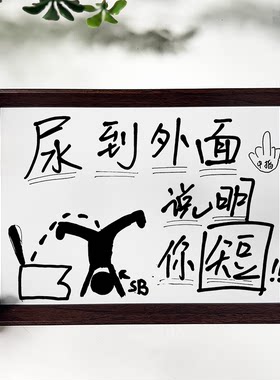 尿到外面
说明
你短!!
SB